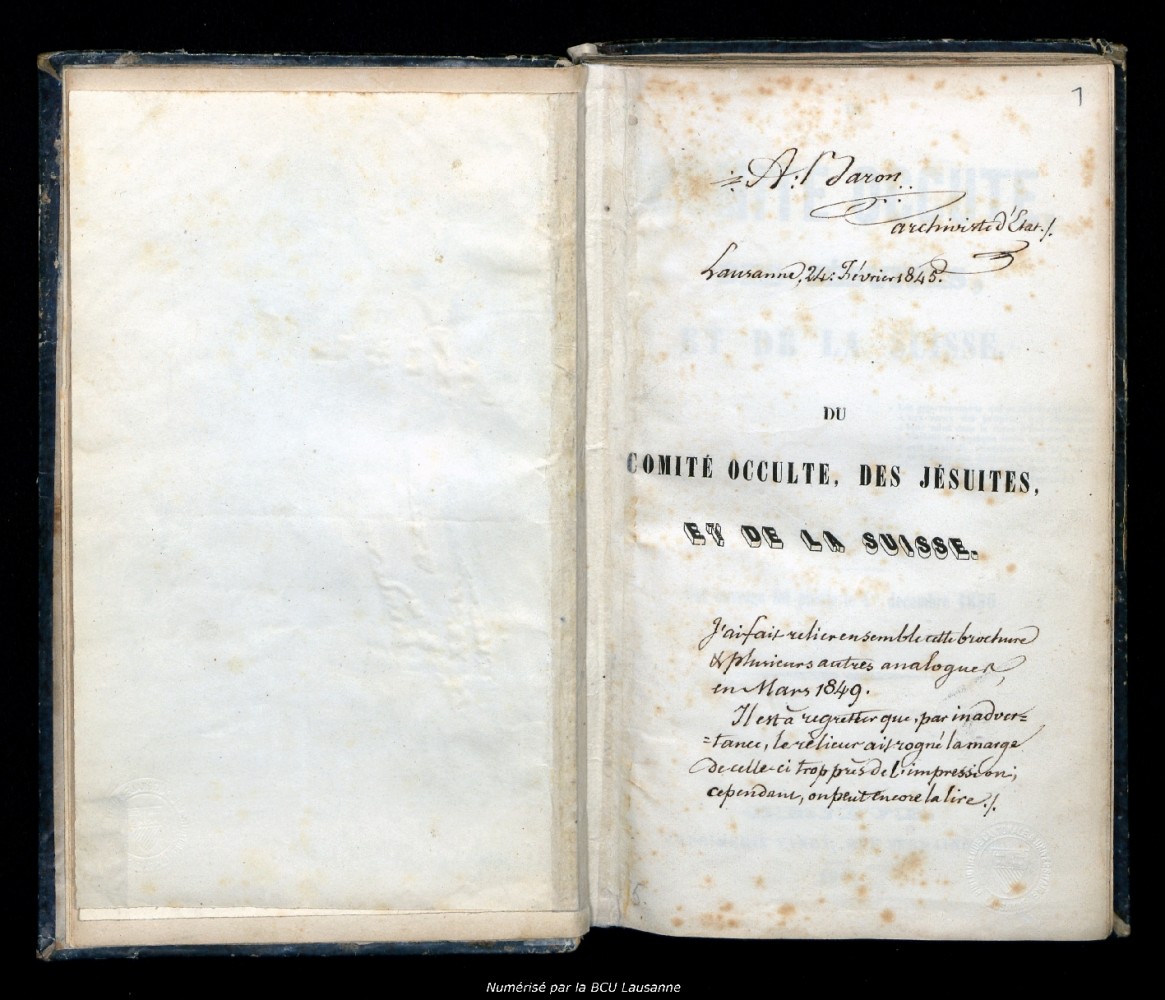 1
A: Baron.
archiviste d'Etat./.
Lausanne, 24: Février 1845.
DU
COMITÉ OCCULTE, DES JÉSUITES,
ET DE LA SUISSE.
J'ai fait relier ensemble cette brochure
& plusieurs autres analogues,
en Mars 1849.
Il est à regretter que, par inadver=
=tance, le relieur ait rogné la marge
de celle-ci trop près de l'impression;
cependant, on peut encore la lire./.
5.
Numérisé par la BCU Lausanne